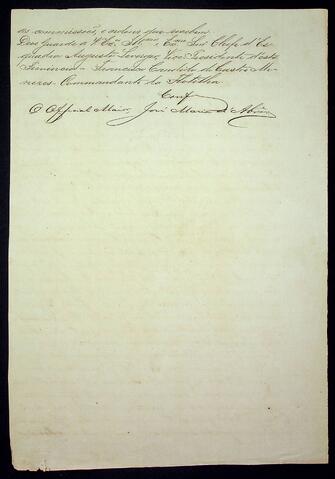 as commissões, e ordens que recebem
Deos Guarde a V. Exa. Illmo. e Exmo. Snr. Chefe d'Es
quadra Augusto Leverger, Vice-Presidente d'esta
Provincia = Francisco Candido de Castro Me
nezes. Commandante da Flotilha
Conf
O Official Maior, José Maria de